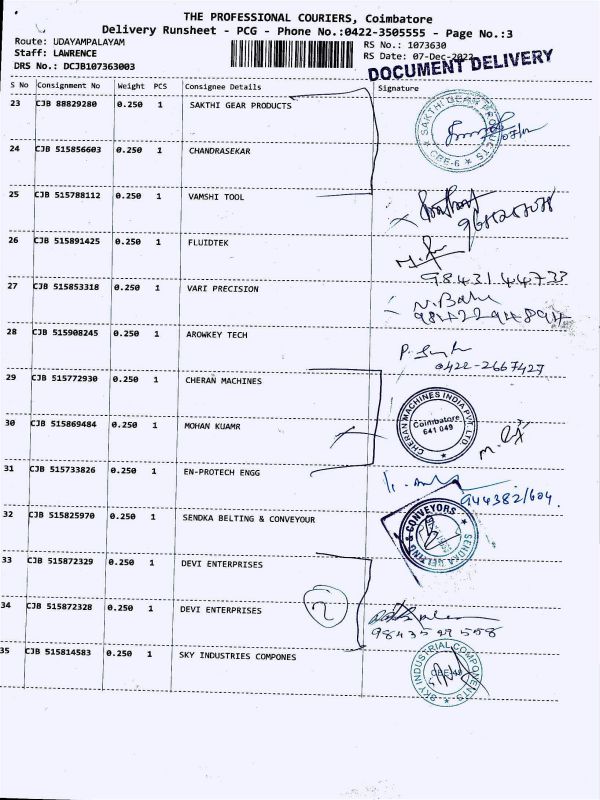 THE PROFESSIONAL COURIERS, Coimbatore
Delivery Runsheet - PCG - Phone No.:0422-3505555 - Page No.:3
Route: UDAYAMPALAYAM
RS No.: 1073630
Staff: LAWRENCE
RS Date: 07-Dec-2022
DRS No.: DCJB107363003
DOCUMENT DELIVERY
S No Consignment No Weight PCS Consignee Details Signature
23 CJB 88829280 0.250 1 SAKTHI GEAR PRODUCTS
SAKTHI GEAR PRODUCTS CBE-6
24 CJB 515856603 0.250 1 CHANDRASEKAR
25 CJB 515788112 0.250 1 VAMSHI TOOL
26 CJB 515891425 0.250 1 FLUIDTEK
9843144733
27 CJB 515853318 0.250 1 VARI PRECISION
N. Babu
28 CJB 515908245 0.250 1 AROWKEY TECH
0422-2667427
29 CJB 515772930 0.250 1 CHERAN MACHINES
CHERAN MACHINES INDIA PVT. LTD.
Coimbatore
641 049
30 CJB 515869484 0.250 1 MOHAN KUAMR
31 CJB 515733826 0.250 1 EN-PROTECH ENGG
32 CJB 515825970 0.250 1 SENDKA BELTING & CONVEYOUR
SENDKA BELTING & CONVEYORS
33 CJB 515872329 0.250 1 DEVI ENTERPRISES
2
34 CJB 515872328 0.250 1 DEVI ENTERPRISES
35 CJB 515814583 0.250 1 SKY INDUSTRIES COMPONES
SKY INDUSTRIAL COMPONENTS